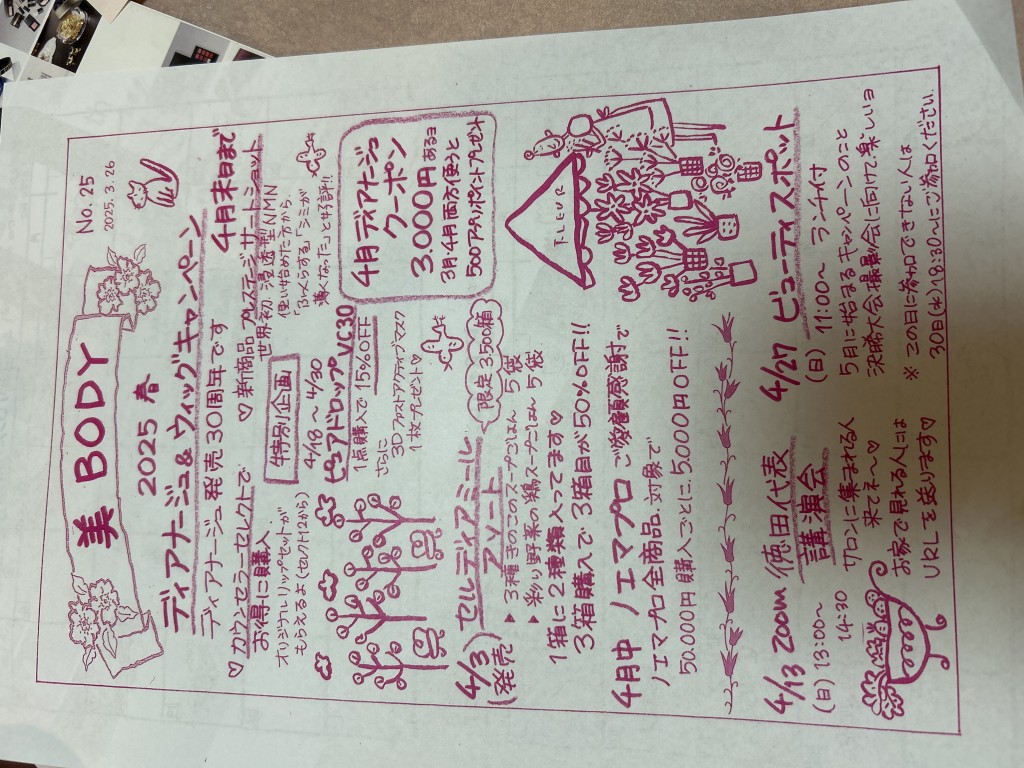 美 BODY
No. 25
2025. 3. 26
2025 春
ディアナージュ&ウィッグキャンペーン
4月末日まで
ディアナージュ発売30周年です
♡カウンセラーセレクトで
お得に購入
オリジナルリップセットが
もらえるよ(セレクト12から)
♡新商品 プレステージサートショット
世界初 浸透型NMN
使い始めた方から、
「ふっくらする」「シミが
薄くなった」と好評!!
特別企画
4/18~4/30
ピュアドロップVC30
1点購入で15%OFF
さらに
3Dファストアクティブマスク
1枚プレゼント♡
4月ディアナージュ
クーポン
3,000円あるヨ
3月4月両方使うと
500アプリポイントプレゼント
4/3)
(発売)
セルディアミール
アソート
限定350箱
▶3種きのこのスープごはん 5袋
▶彩り野菜の鶏スープごはん 5袋
1箱に2種類入ってます♡
3箱購入で3箱目が50%OFF!!
FLEUR
4月中 ノエマプロ ご愛顧感謝祭で
ノエマプロ全商品対象で
50,000円購入ごとに、5,000円OFF!!
4/13 Zoom 德田代表
(日) 13:00~
14:30
講演会
サロンに集まれる人
来てネ~♡
お家で見れる人には
URLを送ります♡
4/27 ビューティスポット
(日) 11:00~ ランチ付
5月に始まるキャンペーンのこと
決勝大会撮影会に向けて、楽しいヨ
※この日に参加できない人は
30日(水)18:30~にご参加ください。